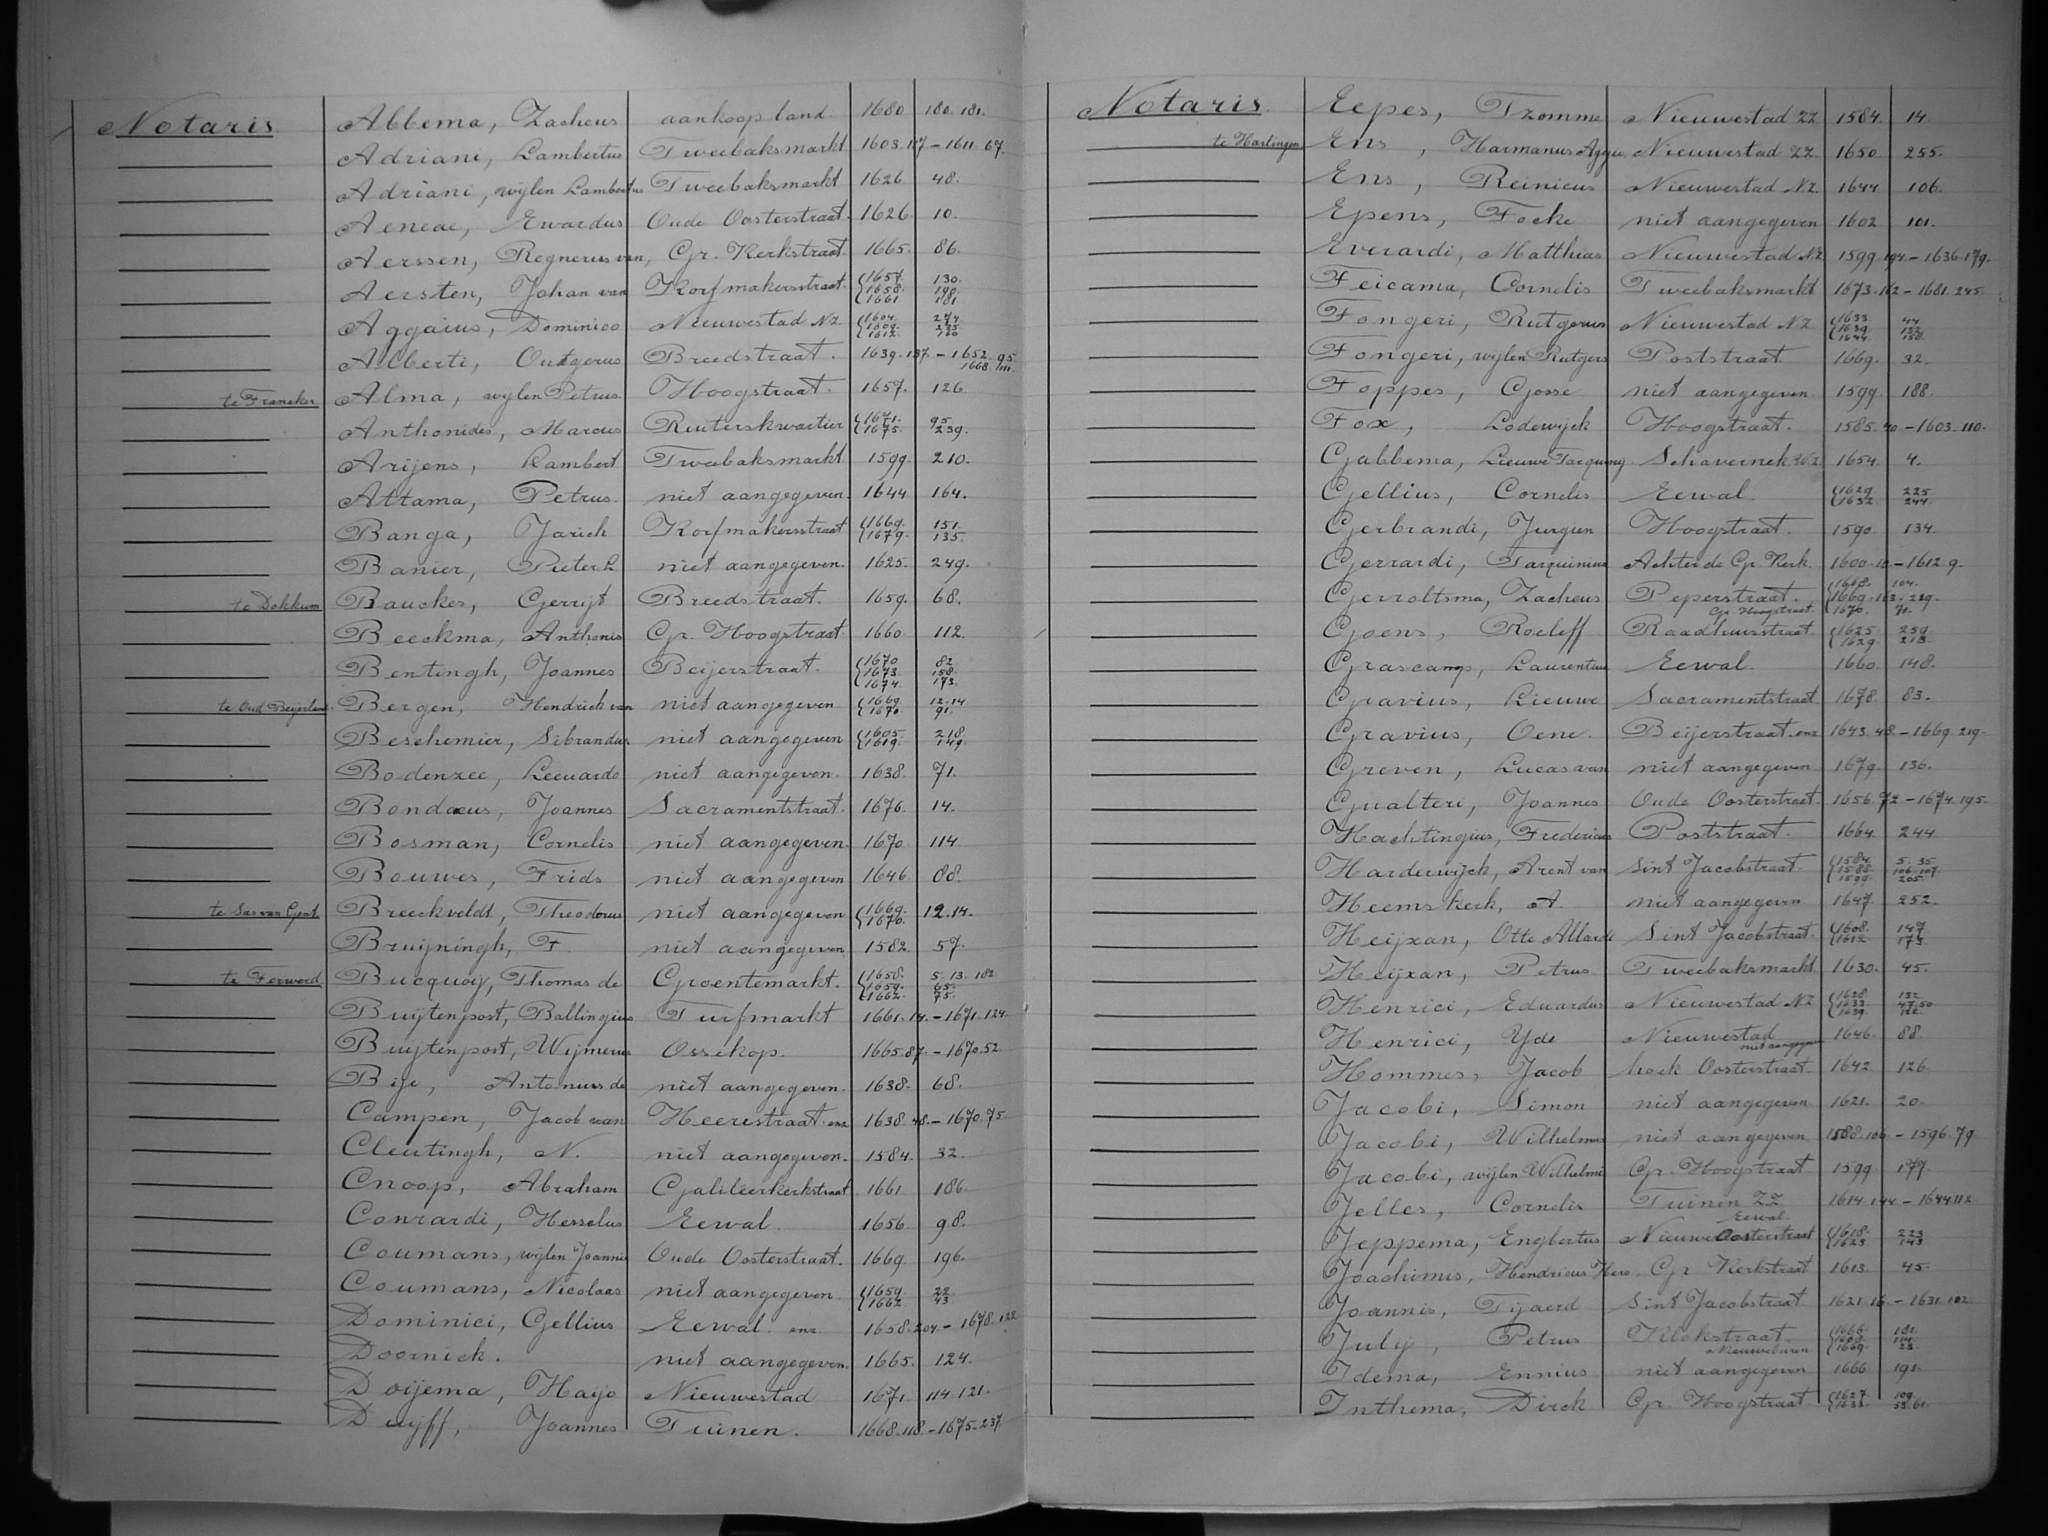 Notaris Abbema, Zacheus aankoop land. 1680 180. 181.
Adriani, Lambertus Tweebaksmarkt 1603.127 - 1611.67.
Adriani, wijlen Lambertus Tweebaksmarkt 1626 48.
Aeneae, Ewardus Oude Oosterstraat. 1626 10.
Aerssen, Regnerus van, Gr. Kerkstraat. 1665. 86.
Aersten, Johan van Korfmakersstraat. 1657. 130.
1658. 190.
1661 181
Aggaius, Dominico Nieuwestad NZ 1604. 274
1609. 285
1612.
Alberti, Outgerus Breedstraat. 1639.137 - 1652. 95.
1668. 111.
te Franeker Alma, wijlen Petrus Hoogstraat. 1657. 126
Anthonides, Marcus Ruiterskwartier 1671. 95.
1675. 239.
Arijens, Lambert Tweebaksmarkt 1599. 210.
Attama, Petrus. niet aangegeven. 1644 164.
Banga, Jarich Korfmakersstraat 1669. 151.
1679. 135.
Banier, Pieter L. niet aangegeven. 1625. 249.
te Dokkum Bauckes, Gerrijt Breedstraat. 1659. 68.
Beeckma, Anthonis Gr. Hoogstraat 1660 112.
Bentingh, Joannes Beijerstraat. 1670 82
1673. 158.
1674. 173.
te Oud Beijerland. Bergen, Hendrick van niet aangegeven 1669. 12.14
1670. 91.
Beschemier, Sibrandus niet aangegeven 1605. 218.
1619. 149.
Bodenzee, Leeuardo niet aangegeven. 1638. 71.
Bondaeus, Joannes Sacramentstraat. 1676. 14.
Bosman, Cornelis niet aangegeven. 1670. 114.
Bouwes, Frids niet aangegeven 1646. 88.
te Sas van Gent. Breeckveldt, Theodorus niet aangegeven 1669. 12.14.
1670.
Bruijningh, F. niet aangegeven 1582. 57.
te Ferwerd Bucquoy, Thomas de Groentemarkt. 1658. 5. 13. 182
1659. 65.
1662. 75.
Buijtenpost, Ballingius Turfmarkt 1661.14. - 1671.124.
Buijtenpost, Wijmerus Ossekop. 1665.87. - 1670.52.
Bije, Antonius de niet aangegeven. 1638. 68.
Campen, Jacob van Heerestraat. enz 1638.48. - 1670.75.
Cleutingh, N. niet aangegeven. 1584. 32.
Cnoop, Abraham Galileerkerkstraat. 1661 186.
Conrardi, Hesselus Eewal. 1656. 98.
Coumans, wijlen Joannis Oude Oosterstraat. 1669. 196.
Coumans, Nicolaas niet aangegeven 1659. 22.
1662 43
Dominici, Gellius Eewal. enz. 1658.204. - 1678.122
Doornick. niet aangegeven. 1665. 124.
Doijema, Hayo Nieuwestad 1671. 114.121.
Duyff, Joannes Tuinen. 1668.118 - 1675.237.
Notaris. Eepes, Tzomme Nieuwestad ZZ 1584. 14.
te Harlingen Ens, Harmanus Aggei. Nieuwestad ZZ 1650. 255.
Ens, Reinicus Nieuwestad NZ. 1644 106.
Epens, Focke niet aangegeven 1602 101.
Everardi, Matthias Nieuwestad NZ 1599.194. - 1636.179.
Feicama, Cornelis Tweebaksmarkt 1673.162 - 1681.245.
Fongeri, Rutgerus Nieuwestad NZ 1633. 44
1639. 132.
1644. 158.
Fongeri, wijlen Rutgers Poststraat 1669. 32.
Foppes, Gosse niet aangegeven 1599. 188.
Fox, Lodewijck Hoogstraat. 1585.40 - 1603.110.
Gabbema, Lieuwe Tarquinij Schavernek WZ 1654. 4.
Gellius, Cornelis Eewal. 1629 225
1632. 244.
Gerbrandi, Jurgien Hoogstraat. 1590. 134.
Gerrardi, Tarquinius Achter de Gr. Kerk. 1600.10 - 1612.9.
Gerroltsma, Zacheus Peperstraat. 1668. 104.
1669. 163. 219.
Gr. Hoogstraat. 1670. 71.
Goens, Roeleff Raadhuisstraat 1625. 259
1629. 218.
Grascamp, Laurentius Eewal. 1660 148.
Gravius, Lieuwe Sacramentstraat 1678. 83.
Gravius, Oene. Beijerstraat. enz 1643.48. - 1669.219.
Greven, Lucas van niet aangegeven 1679. 136.
Gualteri, Joannes Oude Oosterstraat. 1656.72. - 1674.195.
Hachtingius, Fredericus Poststraat. 1664. 244
Harderwijck, Arent van Sint Jacobstraat. 1584. 5. 35.
1588. 106.107.
1599. 205.
Heemskerk, A. niet aangegeven 1647. 252.
Heijxan, Otte Allardi Sint Jacobstraat. 1608. 147
1612 173.
Heijxan, Petrus Tweebaksmarkt 1630. 45.
Henrici, Eduardus Nieuwestad NZ 1628. 132
1633. 47.50
1639.
Henrici, Yde Nieuwestad 1646. 88.
niet aangegeven
Hommes, Jacob hoek Oosterstraat. 1642 126
Jacobi, Simon niet aangegeven 1621. 20.
Jacobi, Wilhelmus niet aangegeven 1588.106 - 1596.79
Jacobi, wijlen Wilhelmi Gr. Hoogstraat 1599 177.
Jelles, Cornelis Tuinen ZZ 1614.144. - 1644.112
Eewal.
Jeppema, Engbertus Nieuwe Oosterstraat 1618. 223
1623 143
Joachimis, Hendricus Hero. Gr. Kerkstraat 1613. 45.
Joannis, Tjaerd Sint Jacobstraat 1621.16. - 1631.102
July, Petrus Klokstraat. 1666. 181.
Nieuweburen 1669. 23.
Idema, Ennius niet aangegeven 1666 191.
Inthema, Dirck Gr. Hoogstraat 1627. 109.
1633. 53.61.